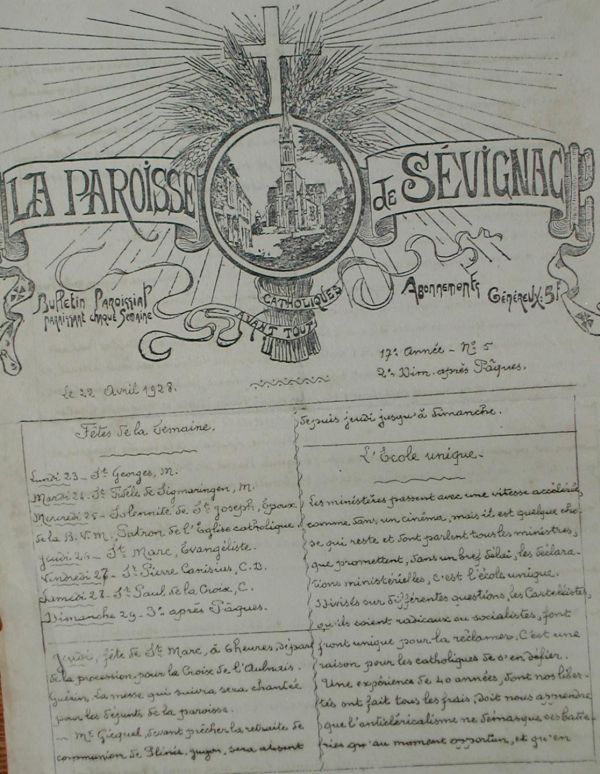 LA PAROISSE de SÉVIGNAC
Bulletin Paroissial
paraissant chaque Semaine
CATHOLIQUES
AVANT TOUT
Abonnements
Généreux: 5F
17e Année - No 5
2e Dim. après Pâques.
le 22 Avril 1928.
Fêtes de la Semaine.
Lundi 23 - St Georges, M.
Mardi 24 - St Fidèle de Sigmaringen, M.
Mercredi 25 - Solennité de St Joseph, Epoux
de la B.V.M., Patron de l'Eglise catholique.
Jeudi 26 - St Marc, Evangéliste.
Vendredi 27 - St Pierre Canisius, C.D.
Samedi 28 - St Paul de la Croix, C.
Dimanche 29 - 3e après Pâques.
Jeudi, fête de St Marc, à 6 heures, départ
de la procession pour la Croix de l'Aulnais-
Guérin, la messe qui suivra sera chantée
pour les défunts de la paroisse.
- Mr Gicquel, devant prêcher la retraite de
communion de Plénée-Jugon, sera absent
depuis jeudi jusqu'à dimanche.
L'Ecole unique.
Les ministères passent avec une vitesse accélérée,
comme dans un cinéma, mais il est quelque cho-
se qui reste et dont parlent tous les ministres,
que promettent, dans un bref délai, les déclara-
tions ministérielles, c'est l'école unique.
Divisés sur différentes questions, les Cartellistes,
qu'ils soient radicaux ou socialistes, font
front unique pour la réclamer. C'est une
raison pour les catholiques de s'en défier.
Une expérience de 40 années, dont nos liber-
tés ont fait tous les frais, doit nous apprendre
que l'anticléricalisme ne démasque ses batte-
ries qu'au moment opportun, et qu'en